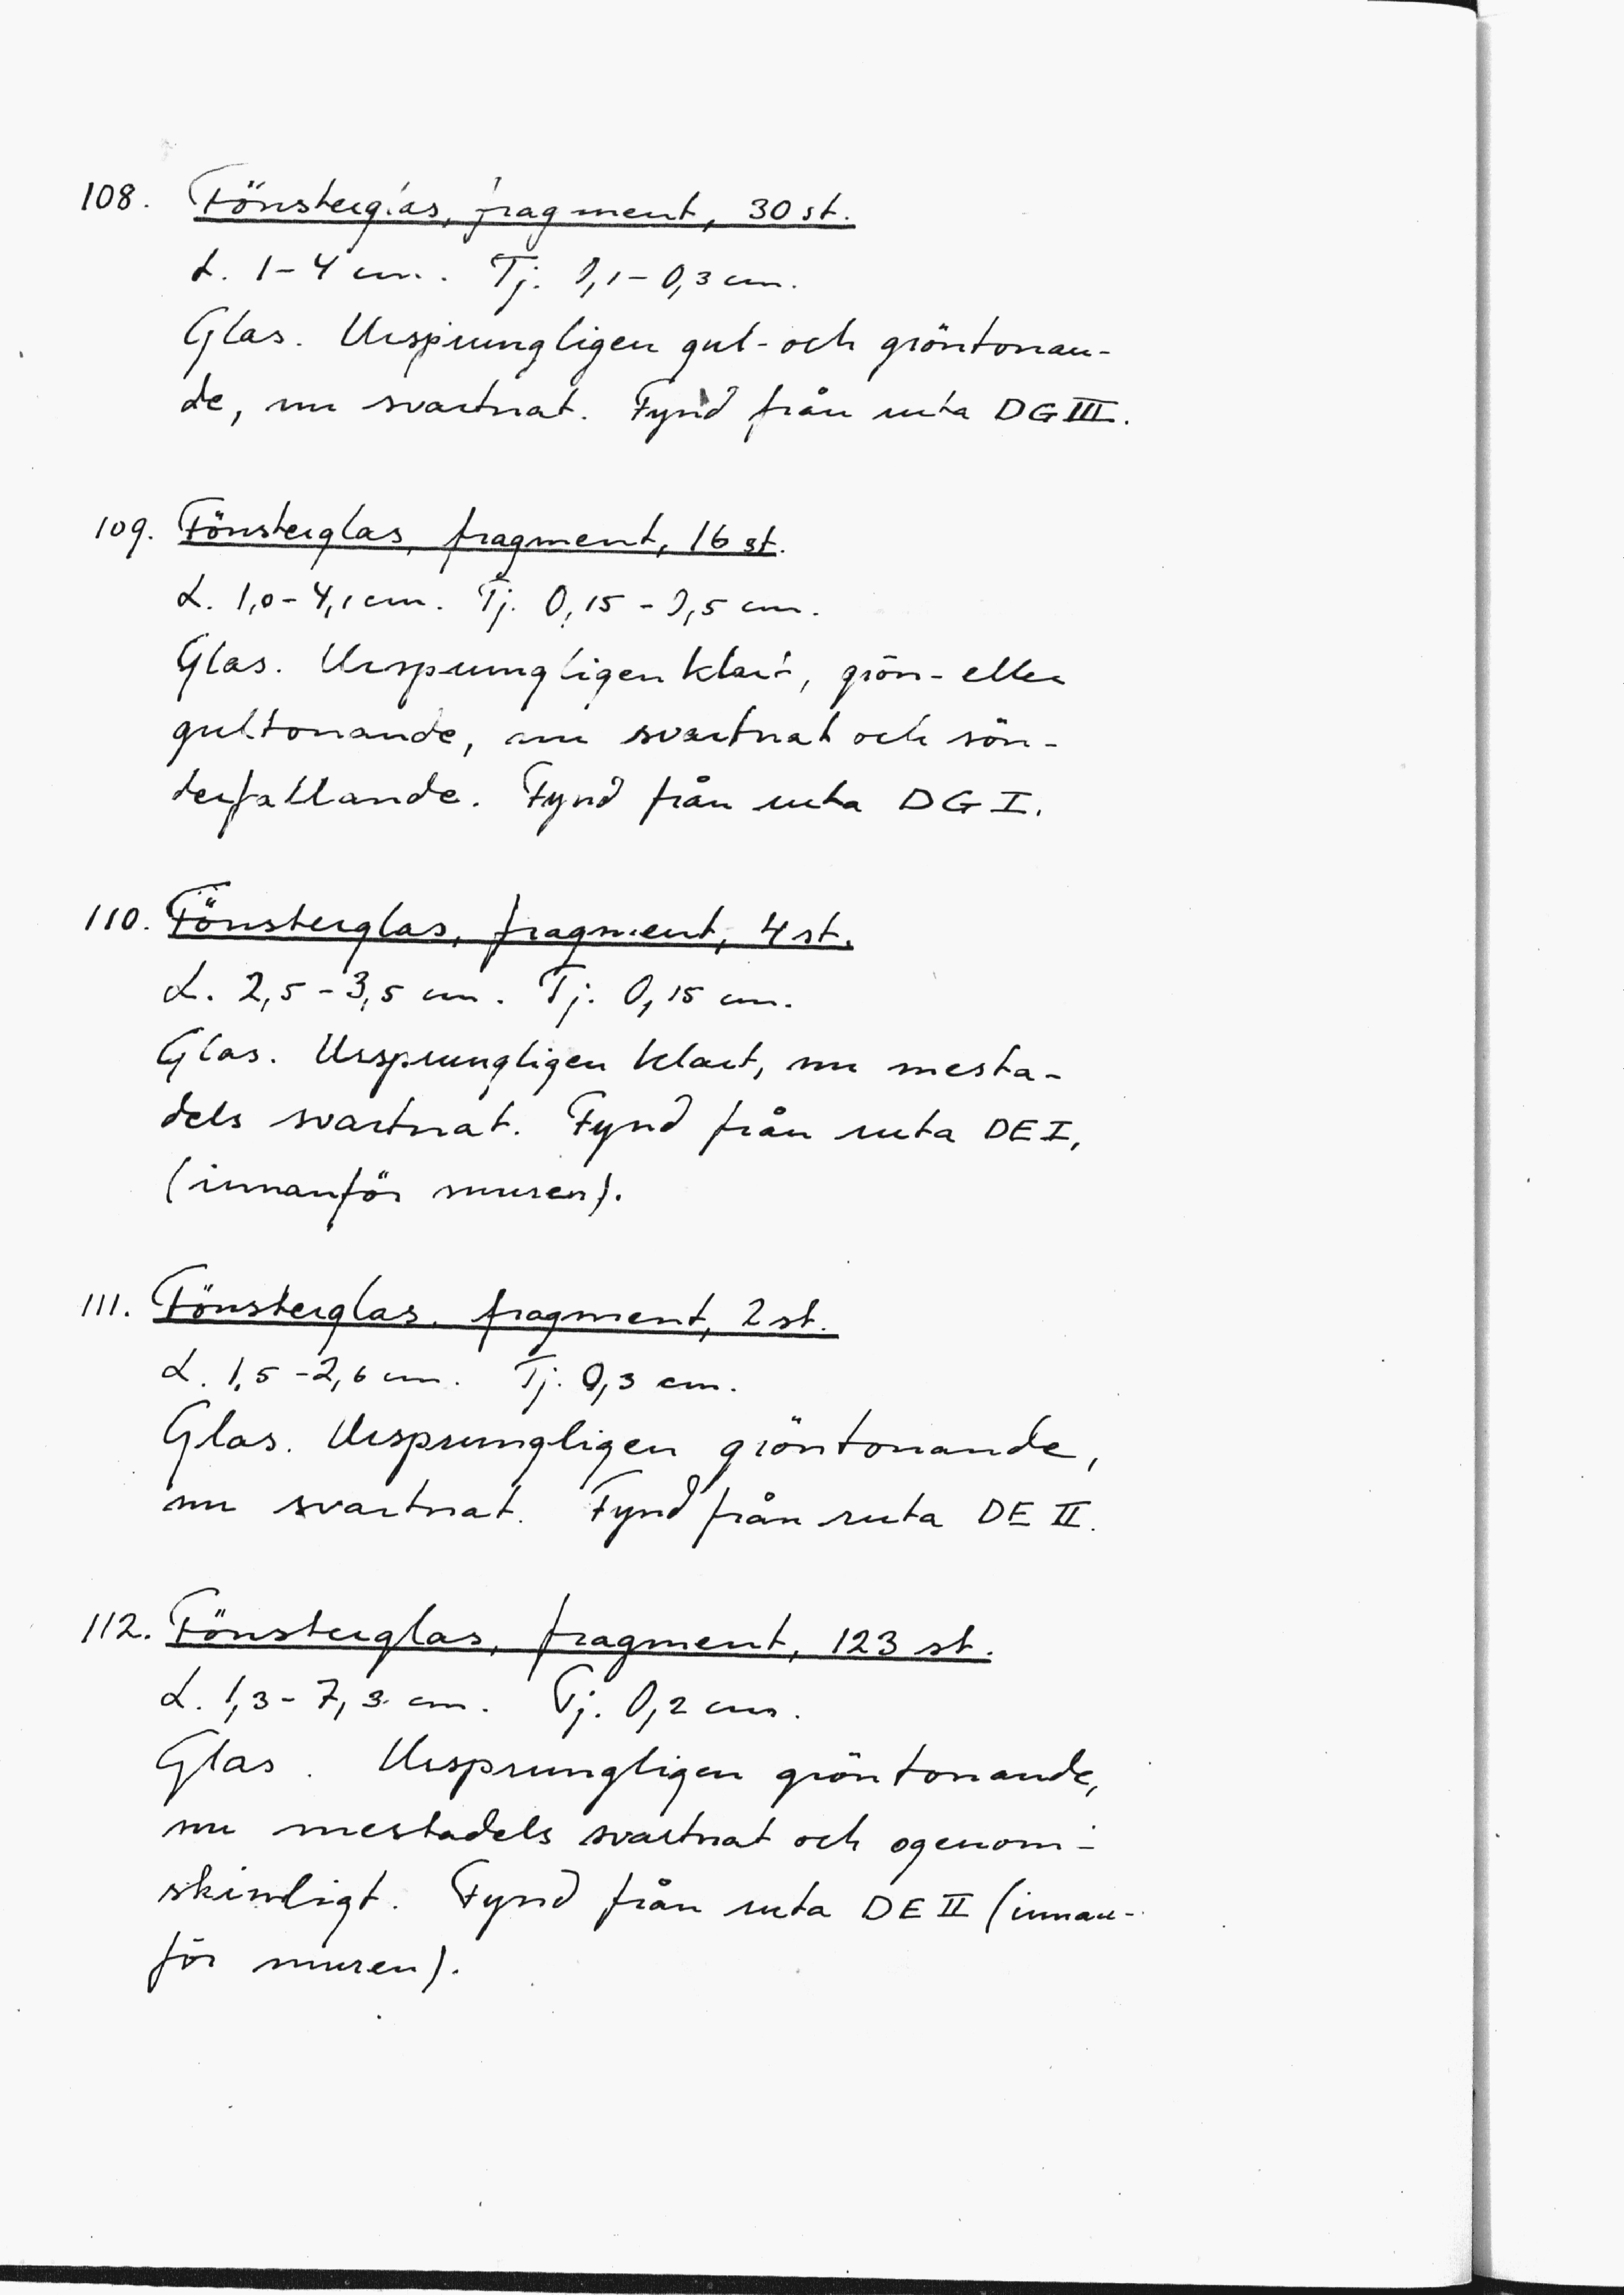 108. Fönsterglas, fragment, 30 st.
L. 1-4 cm. Tj. 0,1-0,3 cm.
Glas. Ursprungligen gul- och gröntonan-
de, nu svartnat. Fynd från ruta DG III.
109. Fönsterglas, fragment, 16 st.
L. 1,0-4,1 cm. Tj. 0,15-0,5 cm.
Glas. Ursprungligen klart, grön- eller
gultonande, nu svartnat och sön-
derfallande. Fynd från ruta DG I.
110. Fönsterglas, fragment, 4 st.
L. 2,5-3,5 cm. Tj. 0,15 cm.
Glas. Ursprungligen klart, nu mesta-
dels svartnat. Fynd från ruta DE I,
(innanför muren).
111. Fönsterglas, fragment, 2 st.
L. 1,5-2,6 cm. Tj. 0,3 cm.
Glas. Ursprungligen gröntonande,
nu svartnat. Fynd från ruta DE II.
112. Fönsterglas, fragment, 123 st.
L. 1,3-7,3 cm. Tj. 0,2 cm.
Glas. Ursprungligen gröntonande,
nu mestadels svartnat och ogenom-
skinligt. Fynd från ruta DE II (innan-
för muren).